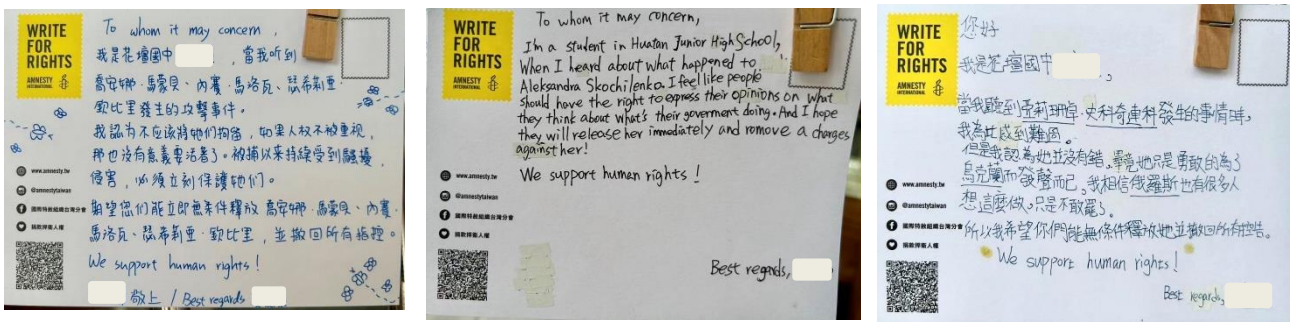 WRITE
FOR
RIGHTS
AMNESTY
INTERNATIONAL
To whom it may concern,
我是花壇國中 , 當我听到
高安娜·馬蒙貝·內賽·馬洛瓦、瑟希莉亞·
欽比里發生的攻擊事件。
我認為不应該將她們拘留, 如果人权不被重视,
那也沒有意義要活著了。被捕以來持续受到騷擾,
侵害, 必须立刻保護她們。
期望您们能立即無条件釋放 高安娜·馬蒙貝·內賽·
馬洛瓦、瑟希莉亞·欽比里, 並撤回所有指控。
We support human rights!
敬上 / Best regards
www.amnesty.tw
@amnestytaiwan
國際特赦組織台灣分會
捐款捍衛人權
WRITE
FOR
RIGHTS
AMNESTY
INTERNATIONAL
To whom it may concern,
I'm a student in Huatan Junior High School,
When I heard about what happened to
Aleksandra Skochilenko. I feel like people
should have the right to express their opinions on what
they think about what's their goverment doing. And I hope
they will release her immediately and remove a charges
against her!
We support human rights!
Best regards,
www.amnesty.tw
@amnestytaiwan
國際特赦組織台灣分會
捐款捍衛人權
WRITE
FOR
RIGHTS
AMNESTY
INTERNATIONAL
您好
我是花壇國中 ,
當我聽到亞莉珊卓·史科奇連科發生的事情時,
我為此感到難過。
但是我認為她並沒有錯, 畢竟她只是勇敢的為了
烏克蘭而發聲而已, 我相信俄羅斯也有很多人
想這麼做, 只是不敢罷了。
所以我希望你們能無條件釋放她並撤回所有控告。
We support human rights!
Best regards,
www.amnesty.tw
@amnestytaiwan
國際特赦組織台灣分會
捐款捍衛人權